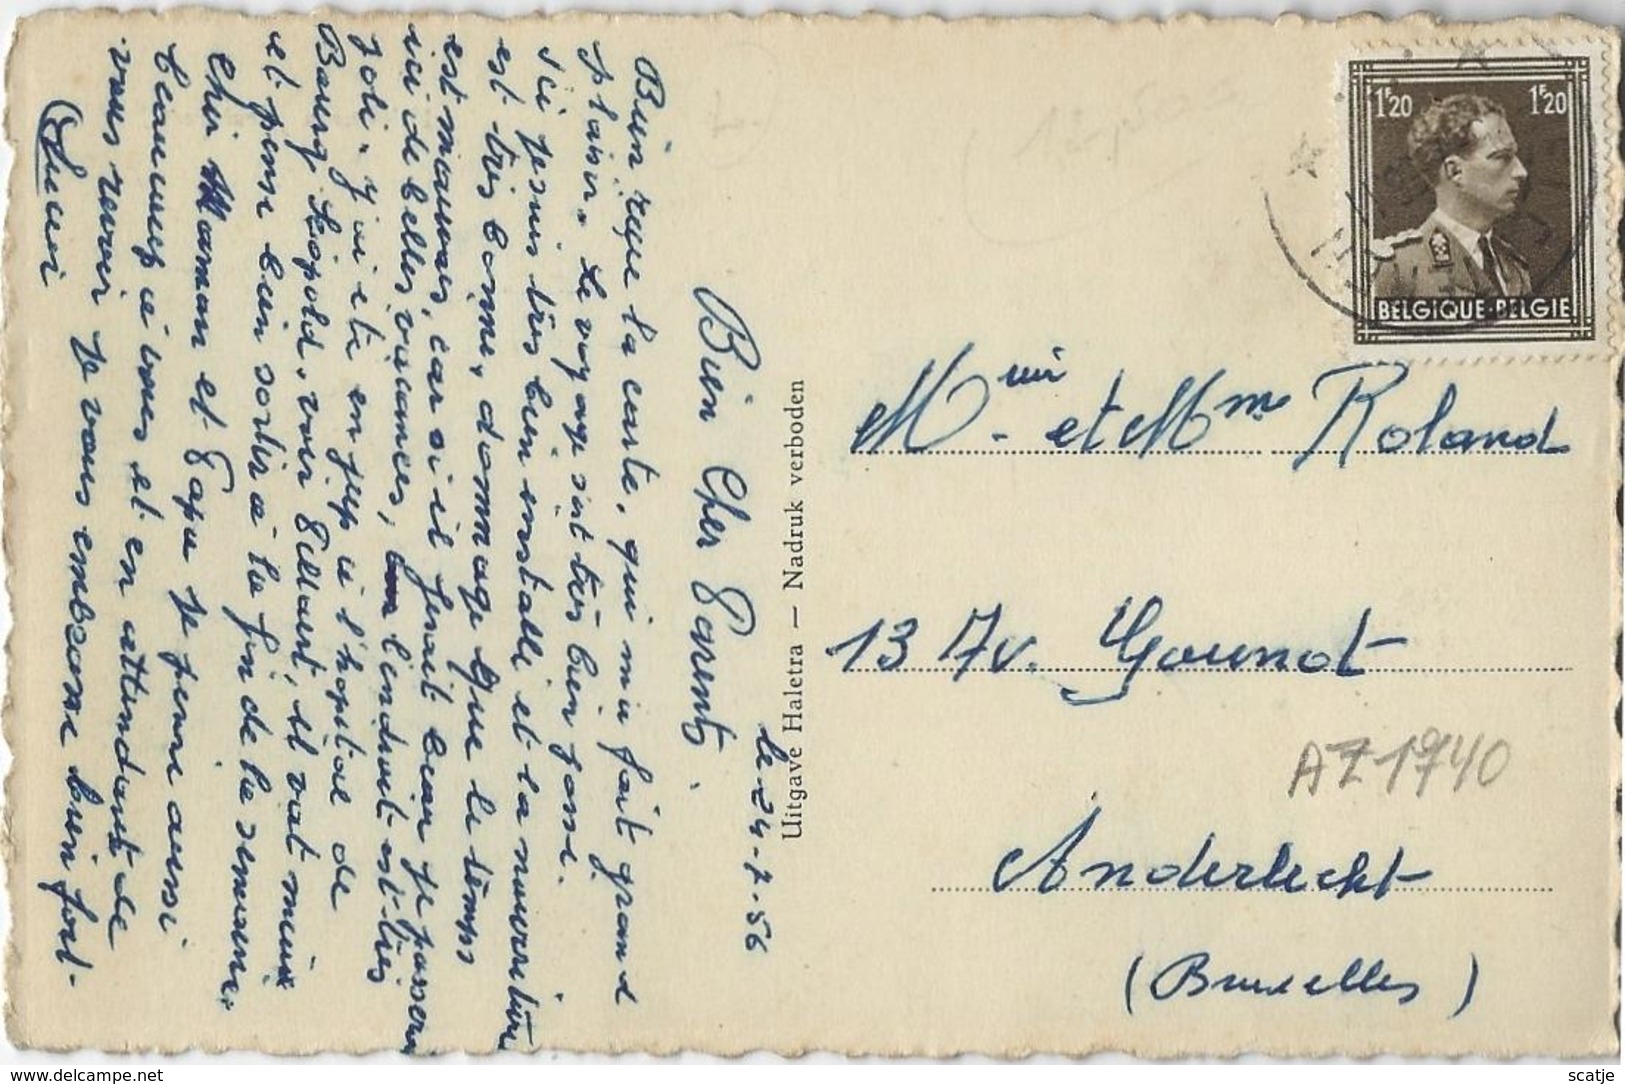 le 24-7-56
Bien Cher Parents.
Bien reçue la carte, qui m'a fait grand
plaisir. Le voyage s'et très bien passé.
Ici je suis très bien installé et la nourriture
est très bonne, dommage que le temps
est mauvais, car si il ferait beau je passerai
ici de belles vacances, l'endroit est très
joli. j'ai été en jeep à l'hopital de
Bourg Léopold, voir il vat mieux
et pense bien sortir à la fin de la semaine.
Cher Maman et Papa je pense aussi
beaucoup à vous et en attendant de
vous revoir je vous embrasse bien fort.
Uitgave Haletra — Nadruk verboden
1F20 1F20
BELGIQUE-BELGIE
et Mme Roland
13 Av. Gounot
AZ1740
Anderlecht
(Bruxelles)
www.delcampe.net
scatje